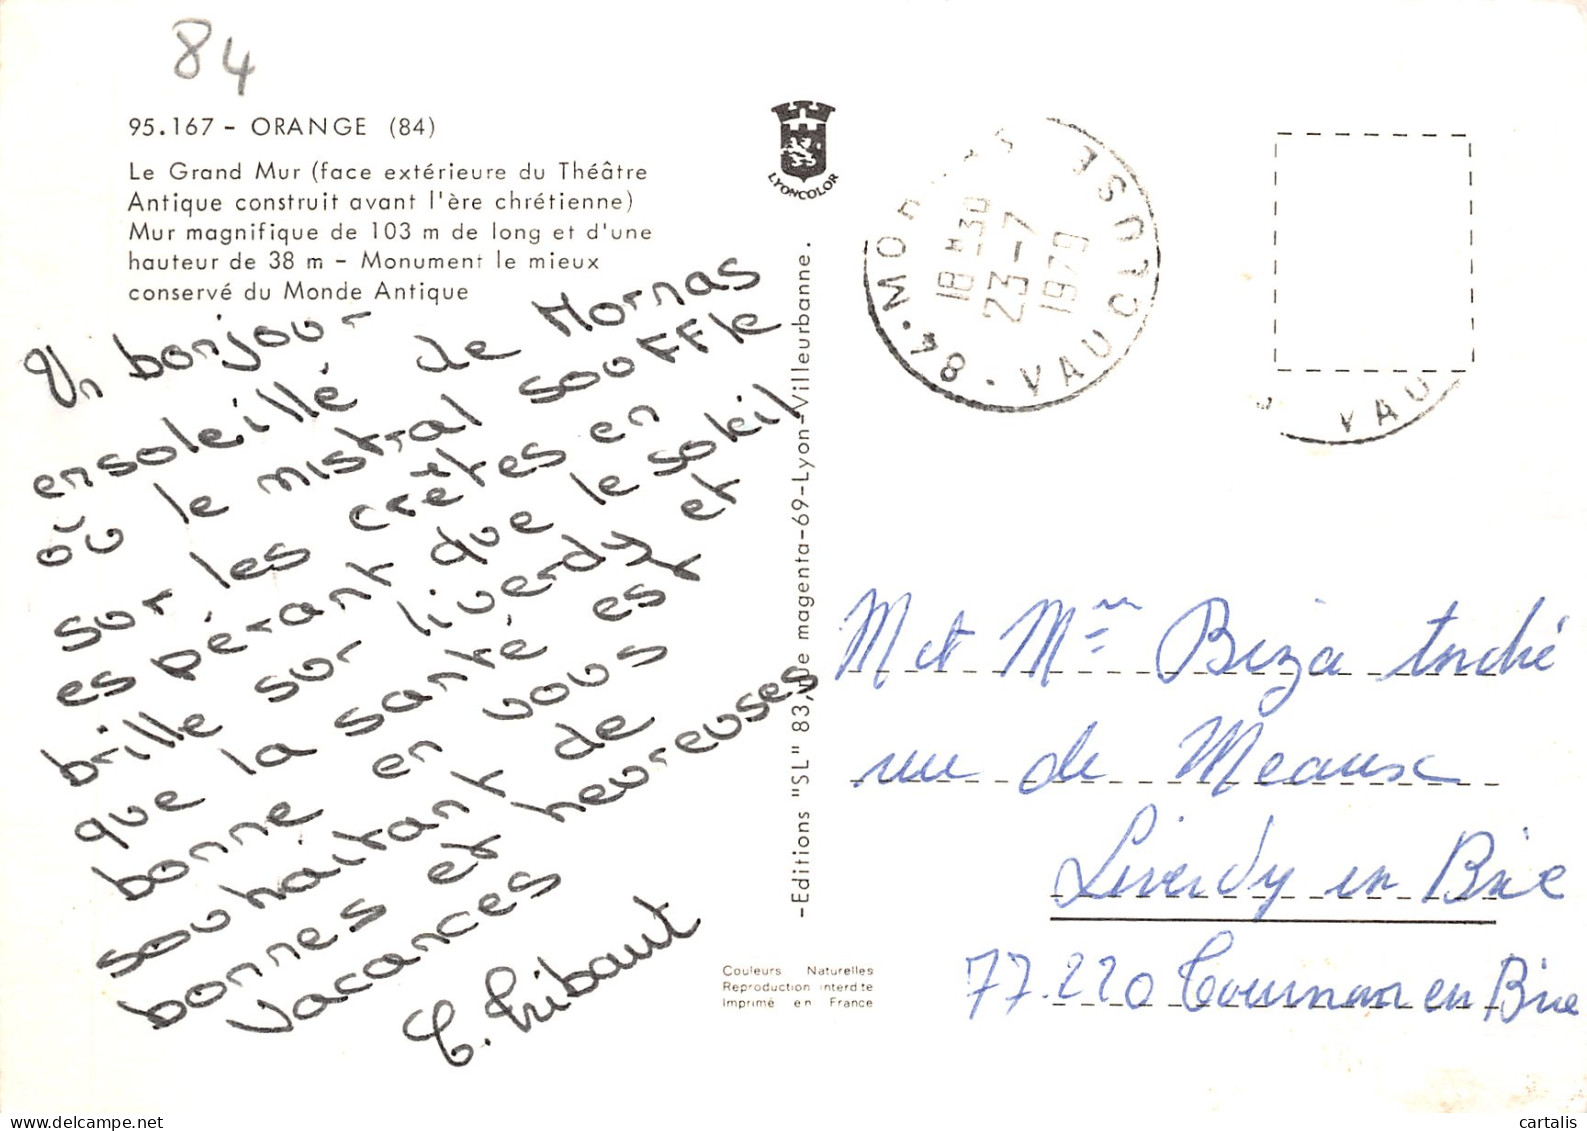 84
95.167 - ORANGE (84)
Le Grand Mur (face extérieure du Théâtre
Antique construit avant l'ère chrétienne)
Mur magnifique de 103 m de long et d'une
hauteur de 38 m - Monument le mieux
conservé du Monde Antique
Un bonjour
ensoleillé de Mornas
où le mistral souffle
sur les crêtes en
espérant que le soleil
brille sur Liverdy et
que la santé est
bonne en vous
souhaitant de
bonnes et heureuses
vacances
C. Thibaut
LYONCOLOR
-Editions "SL" 83, rue magenta-69-Lyon-Villeurbanne.
Couleurs Naturelles
Reproduction interdite
Imprimé en France
84 - MORNAS VAUCLUSE
18 H 30
23-7
1979
VAU
M et Mme Biza André
rue de Meaux
Liverdy en Brie
77.220 Tournan en Brie
cartalis